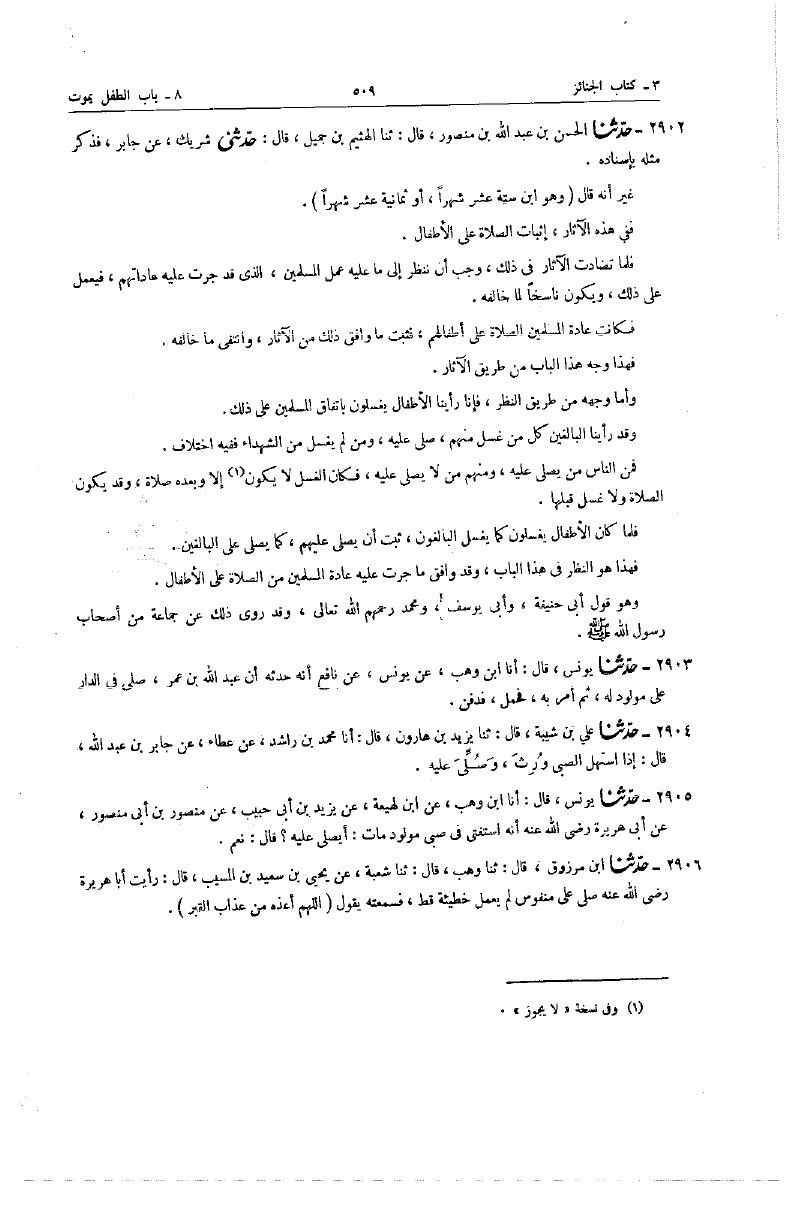 ٣ - كتاب الجنائز ٥٠٩ ٨ - باب الطفل يموت
٢٩٠٢ - حدّثنا الحسن بن عبد الله بن منصور ، قال : ثنا الهيثم بن جميل ، قال : حدّثنى شريك ، عن جابر ، فذكر
مثله بإسناده .
غير أنه قال ( وهو ابن ستة عشر شهراً ، أو ثمانية عشر شهراً ) .
ففي هذه الآثار ، إثبات الصلاة على الأطفال .
فلما تضادت الآثار فى ذلك ، وجب أن ننظر إلى ما عليه عمل المسلمين ، الذى قد جرت عليه عاداتهم ، فيعمل
على ذلك ، ويكون ناسخاً لما خالفه .
فكانت عادة المسلمين الصلاة على أطفالهم ، فثبت ما وافق ذلك من الآثار ، وانتفى ما خالفه .
فهذا وجه هذا الباب من طريق الآثار .
وأما وجهه من طريق النظر ، فإنا رأينا الأطفال يغسلون باتفاق المسلمين على ذلك .
وقد رأينا البالغين كل من غسل منهم ، صلى عليه ، ومن لم يغسل من الشهداء ففيه اختلاف .
فمن الناس من يصلى عليه ، ومنهم من لا يصلى عليه ، فكان الغسل لا يكون(١) إلا وبعده صلاة ، وقد يكون
الصلاة ولا غسل قبلها .
فلما كان الأطفال يغسلون كما يغسل البالغون ، ثبت أن يصلى عليهم ، كما يصلى على البالغين .
فهذا هو النظر فى هذا الباب ، وقد وافق ما جرت عليه عادة المسلمين من الصلاة على الأطفال .
وهو قول أبى حنيفة ، وأبى يوسف ، ومحمد رحمهم الله تعالى ، وقد روى ذلك عن جماعة من أصحاب
رسول الله ﷺ .
٢٩٠٣ - حدّثنا يونس ، قال : أنا ابن وهب ، عن يونس ، عن نافع أنه حدثه أن عبد الله بن عمر ، صلى فى الدار
على مولود له ، ثم أمر به ، فحمل ، فدفن .
٢٩٠٤ - حدّثنا علي بن شيبة ، قال : ثنا يزيد بن هارون ، قال : أنا محمد بن راشد ، عن عطاء ، عن جابر بن عبد الله ،
قال : إذا استهل الصبى وُرِثَ ، وَصُلِّىَ عليه .
٢٩٠٥ - حدّثنا يونس ، قال : أنا ابن وهب ، عن ابن لهيعة ، عن يزيد بن أبى حبيب ، عن منصور بن أبى منصور ،
عن أبى هريرة رضى الله عنه أنه استفتى فى صبى مولود مات : أيصلى عليه ؟ قال : نعم .
٢٩٠٦ - حدّثنا ابن مرزوق ، قال : ثنا وهب ، قال : ثنا شعبة ، عن يحيى بن سعيد بن المسيب ، قال : رأيت أبا هريرة
رضى الله عنه صلى على منفوس لم يعمل خطيئة قط ، فسمعته يقول ( اللهم أعذه من عذاب القبر ) .
(١) وفى نسخة « لا يجوز » .